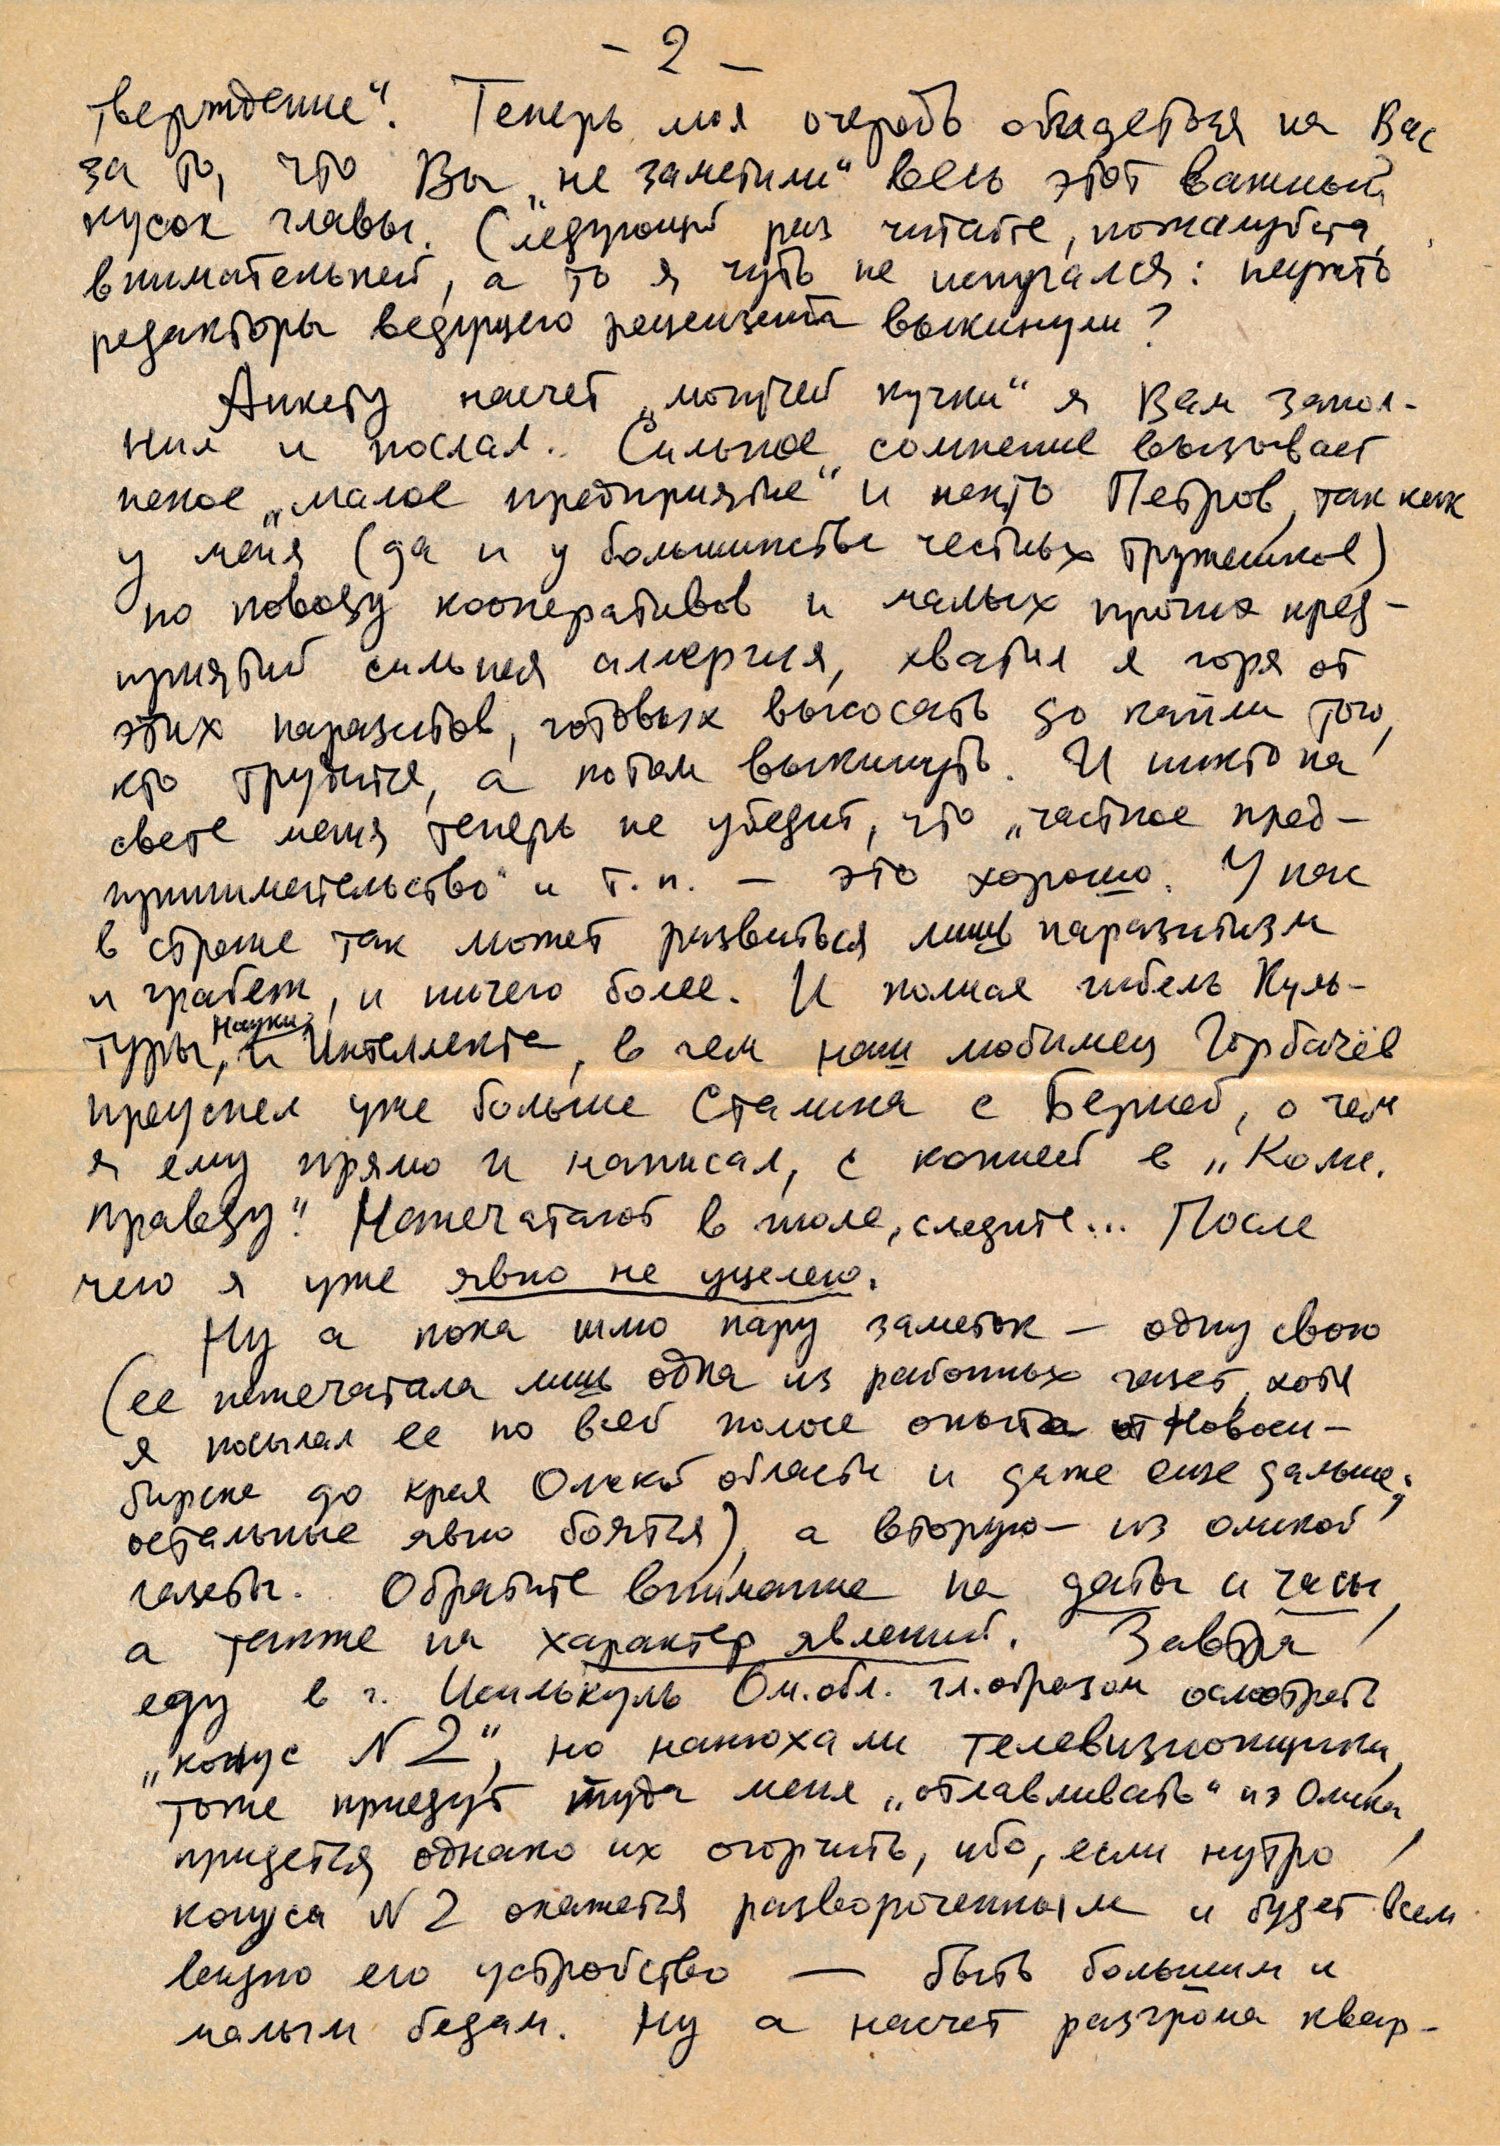 - 2 -
тверждение“. Теперь моя очередь обидеться на Вас
за то, что Вы „не заметили“ весь этот важный
кусок главы. (Следующий раз читайте, пожалуйста,
внимательней, а то я чуть не испугался: неужто
редакторы ведущего рецензента выкинули?
Анкету насчет „могучей кучки“ я Вам запол-
нил и послал. Сильное сомнение вызывает
некое „малое предприятие“ и некто Петров, так как
у меня (да и у большинства честных тружеников)
по поводу кооперативов и малых прочих пред-
приятий сильная аллергия, хватил я горя от
этих паразитов, готовых высосать до капли того,
кто трудится, а потом выкинуть. И никто на
свете меня теперь не убедит, что „частное пред-
принимательство“ и т.п. — это хорошо. У нас
в стране так может развиться лишь паразитизм
и грабеж, и ничего более. И полная гибель Куль-
туры, Науки, и Интеллекта, в чем наш любимец Горбачёв
преуспел уже больше Сталина с Берией, о чем
я ему прямо и написал, с копией в „Комс.
правду“. Напечатают в июле, следите... После
чего я уже явно не уцелею.
Ну а пока шлю пару заметок — одну свою
(ее напечатала лишь одна из районных газет, хотя
я посылал ее по всей полосе опыта от Новоси-
бирска до края Омской области и даже еще дальше;
остальные явно боятся), а вторую — из омской
газеты. Обратите внимание на даты и часы,
а также на характер явлений. Завтра
еду в г. Исилькуль Ом.обл. гл.образом осмотреть
„конус N 2“, но нанюхали телевизионщики,
тоже приедут туда меня „отлавливать“ из Омска,
придется однако их огорчить, ибо, если нутро
конуса N 2 окажется развороченным и будет всем
видно его устройство — быть большим и
малым бедам. Ну а насчет разгрома квар-